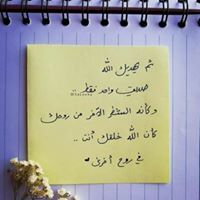 ثم يهديك الله
صديق واحد فقط ..
وكأنه الشطر الآخر من روحك
كأن الله خلقك أنت ..
في روح أخرى